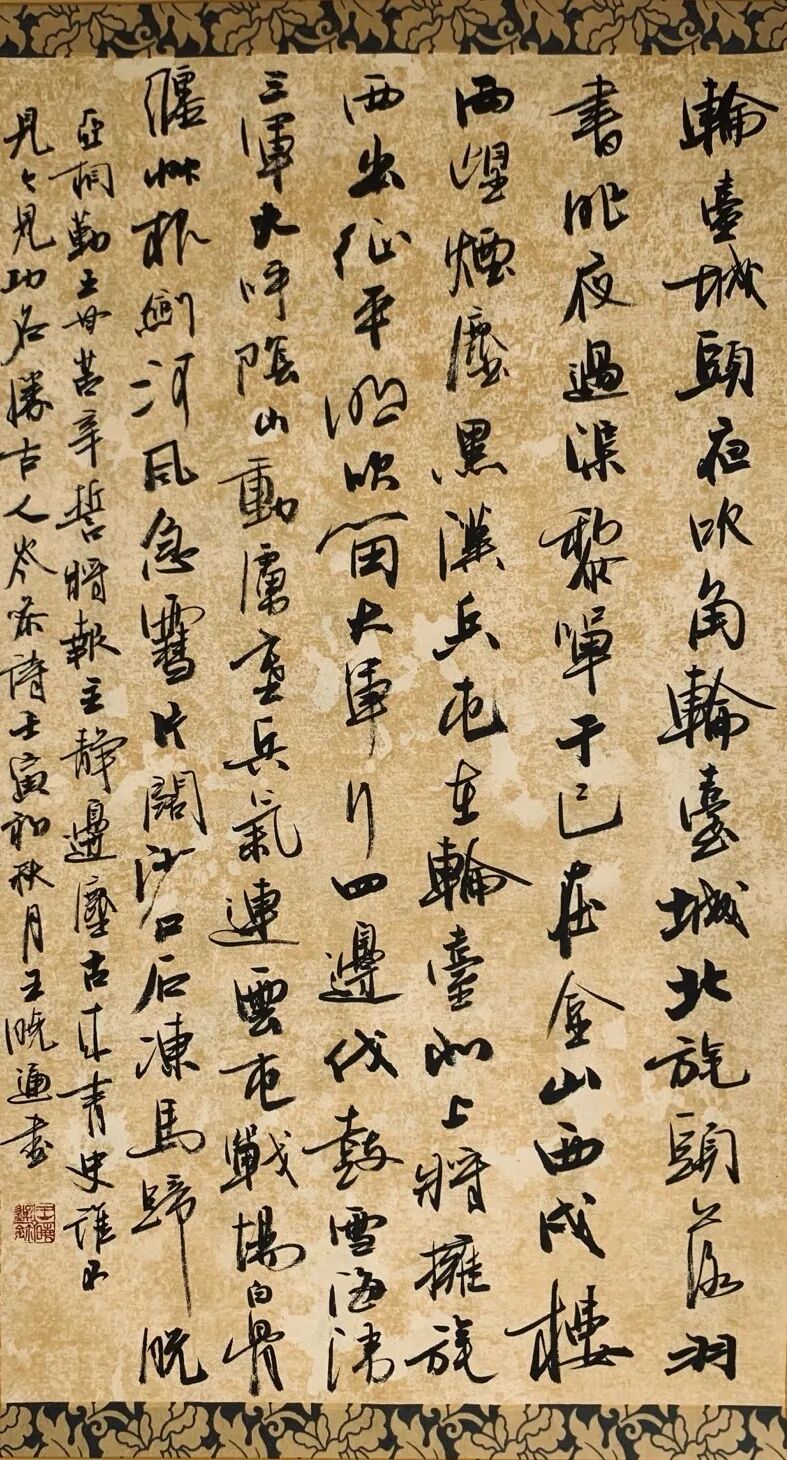 輪臺城頭夜吹角輪臺城北旄頭落羽
書昨夜過渠黎單于已在金山西戍樓
西望煙塵黑漢兵屯在輪臺北上將擁旄
西出征平明吹笛大軍行四邊伐鼓雪海涌
三軍大呼陰山動虜塞兵氣連雲屯戰場白骨
纏艸根劍河風急雪片闊沙口石凍馬蹄脫
亞相勤王甘苦辛誓將報主靜邊塵古來青史誰不
見今見功名勝古人岑參詩壬寅初秋月王曉通書